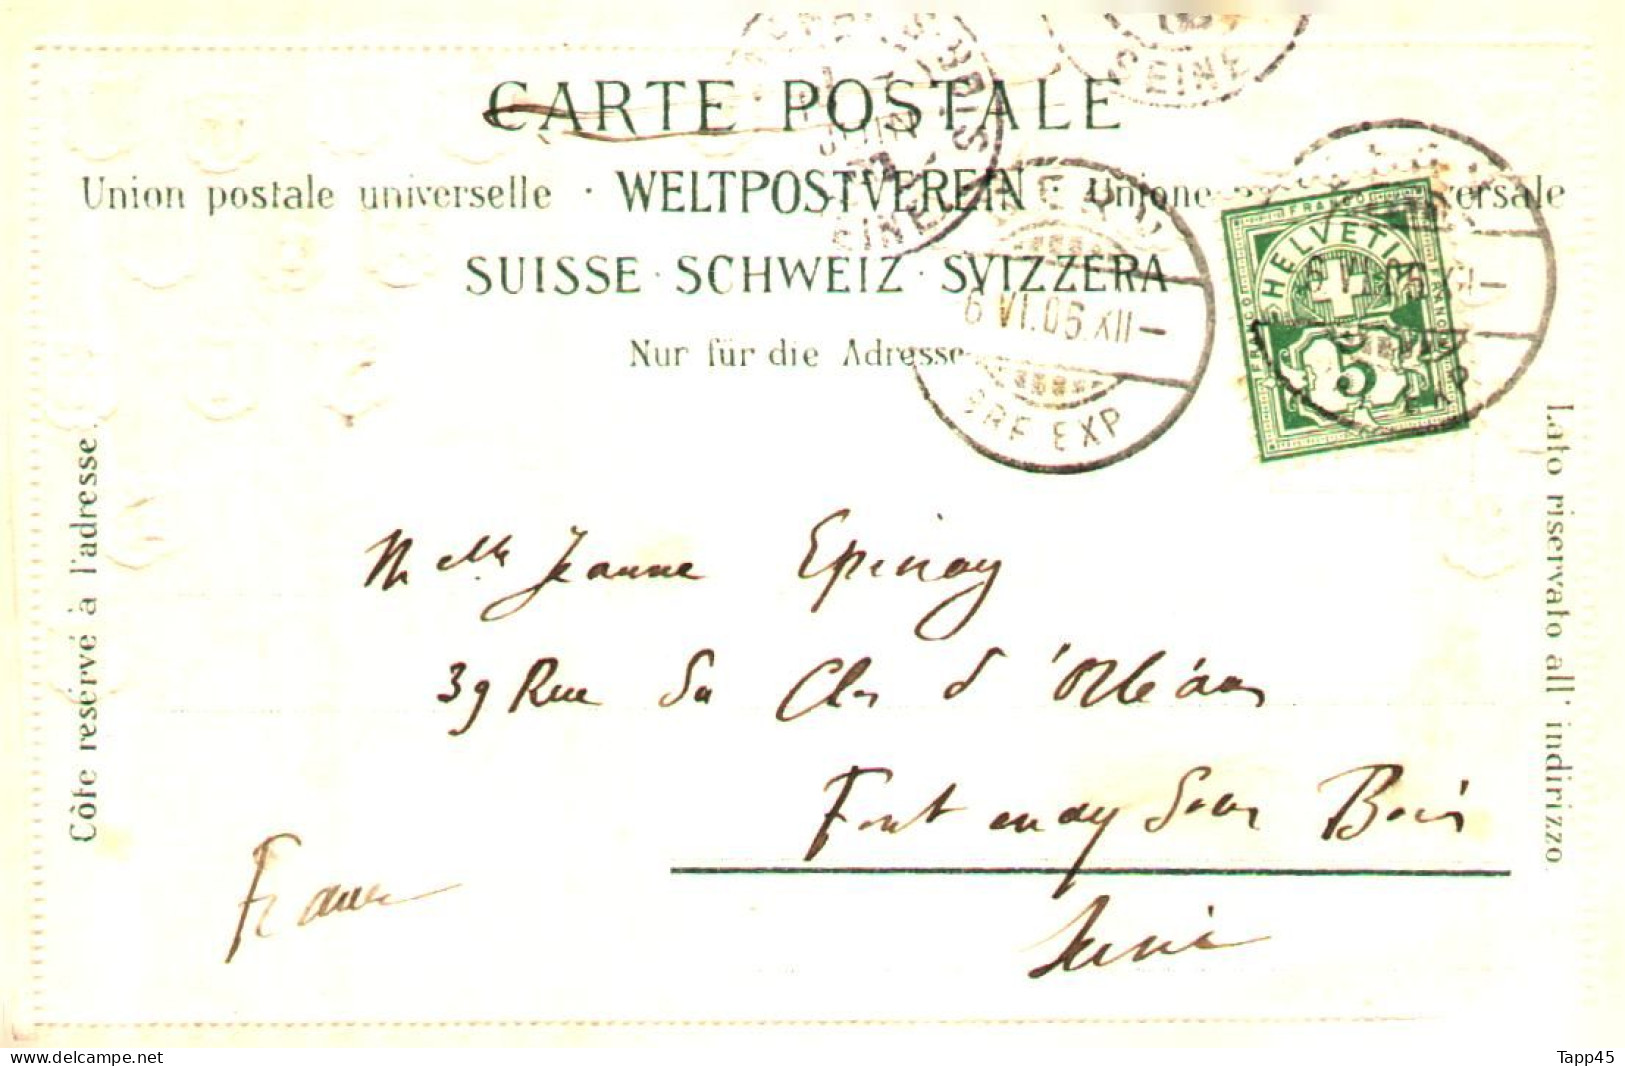 CARTE POSTALE
Union postale universelle · WELTPOSTVEREIN · Unione ersale
SUISSE · SCHWEIZ · SVIZZERA
Nur für die Adresse
Côte reservé à l'adresse.
Lato riservato all' indirizzo
SEINE
BOIS
6 VI. 06. XII –
BRF EXP
6 VI. 06. XI –
EXP
FRANCO
HELVETIA
FRANCO
FRANCO
5
Melle Jeanne Epinay
39 Rue du Clos d'Orléans
Fontenay Sous Bois
Seine
France
www.delcampe.net
Tapp45